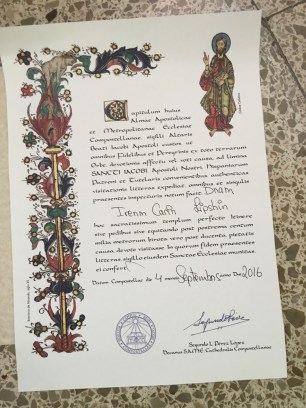 Capitulum huius
Almae Apostolicae
et Metropolitanae Ecclesiae
Compostellanae sigilli Altaris
Beati Iacobi Apostoli custos, ut
omnibus Fidelibus et Peregrinis ex toto terrarum
Orbe, devotionis affectu vel voti causa, ad limina
SANCTI IACOBI, Apostoli Nostri, Hispaniarum
Patroni et Tutelaris convenientibus, authenticas
visitationis litteras expediat, omnibus et singulis
praesentes inspecturis, notum facit: Dnam
hoc sacratissimum templum, perfecto Itinere
sive pedibus sive equitando post postrema centum
milia metrorum, birota vero post ducenta, pietatis
causa, devote visitasse. In quorum fidem praesentes
litteras, sigillo eiusdem Sanctae Ecclesiae munitas,
ei confero.
Datum Compostellae die 4 mensis Septembris anno Dni 2016
Segundo L. Pérez López
Decanus S.A.M.E. Cathedralis Compostellanae